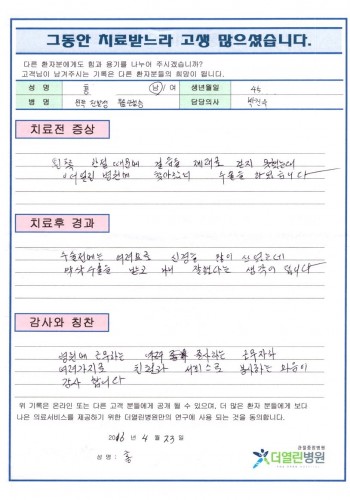 그동안 치료받느라 고생 많으셨습니다.
다른 환자분에게도 힘과 용기를 나누어 주시겠습니까?
고객님이 남겨주시는 기록은 다른 환자분들의 희망이 됩니다.
성 명 홍 남/여 생년월일
병 명 담당의사
치료전 증상
걸음을 제대로 걷지 못했는데
더열린 병원에 찾아와 수술을 하였습니다
치료후 경과
수술전에는 여러모로 신경을 많이 쓰였는데
막상 수술을 받고 나니 잘했다는 생각이 듭니다
감사와 칭찬
병원에 근무하는 종사하는 근무자가
여러가지로 친절과 서비스로 봉사하는 마음이
감사 합니다
위 기록은 온라인 또는 다른 고객 분들에게 공개 될 수 있으며, 더 많은 환자 분들에게 보다
나은 의료서비스를 제공하기 위한 더열린병원만의 연구에 사용 되는 것을 동의합니다.
2016 년 4 월 23 일
성 명 : 홍
관절중점병원
더열린병원